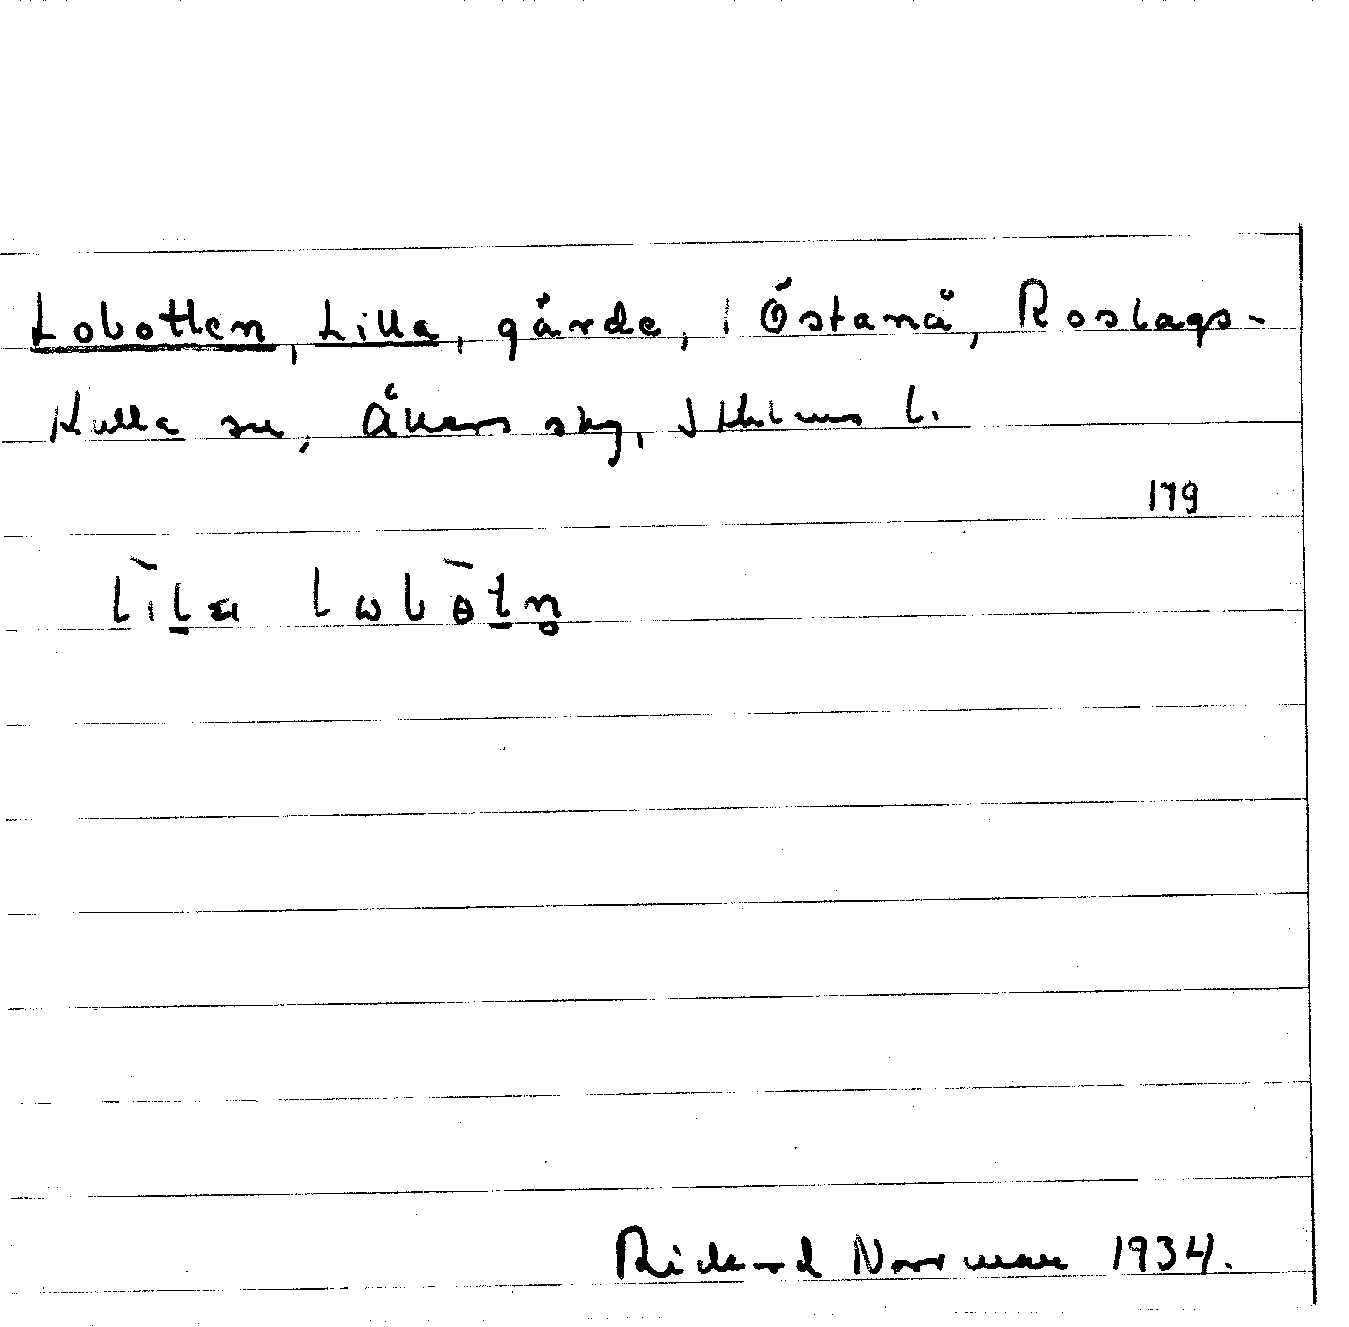 Lobotten, Lilla, gärde, i Östanå, Roslags-
Kulla sn, Åkers skg, Sthlms l.
179
lìlа lωbòtn̥
Rickard Norrman 1934.